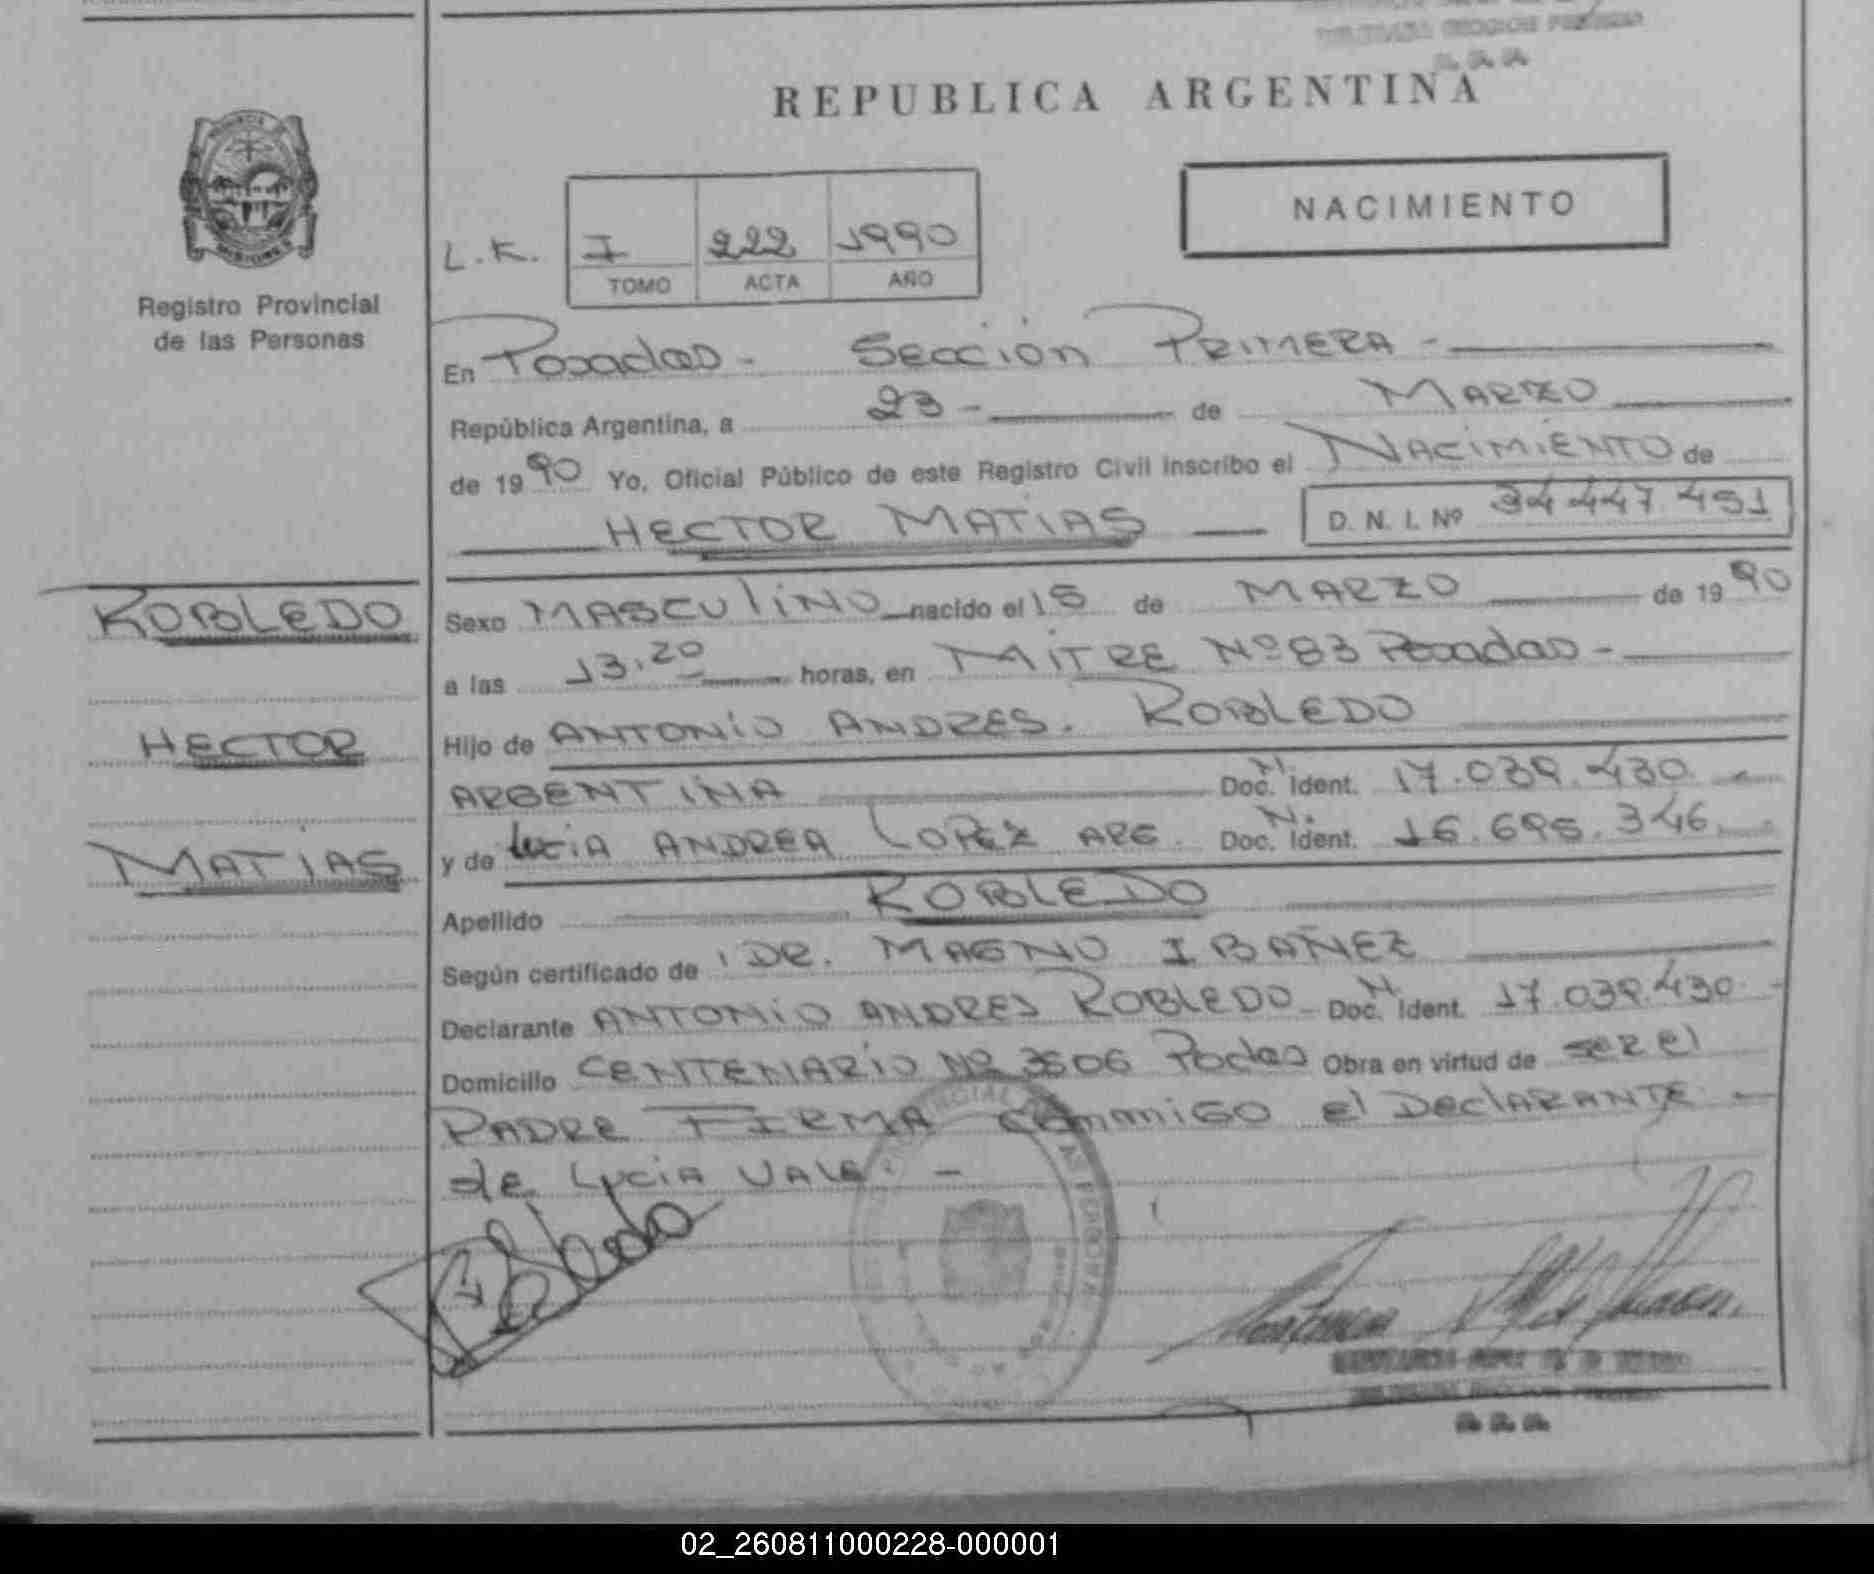 REPUBLICA ARGENTINA
NACIMIENTO
L.K. I 222 1990
TOMO ACTA AÑO
Registro Provincial
de las Personas
En Posadas - Sección PRIMERA -
República Argentina, a 23 - de MARZO
de 1990 Yo, Oficial Público de este Registro Civil inscribo el NACIMIENTO de
HECTOR MATIAS D. N. I. Nº 34.447.451
ROBLEDO
HECTOR
MATIAS
Sexo MASCULINO nacido el 15 de MARZO de 1990
a las 13,20 horas, en MITRE Nº 83 Posadas -
Hijo de ANTONIO ANDRES. ROBLEDO
ARGENTINA Doc. N. Ident. 17.039.430 -
y de LUCIA ANDREA LOPEZ ARG. Doc. N. Ident. 16.695.346.-
Apellido ROBLEDO
Según certificado de DR. MAGNO IBAÑEZ
Declarante ANTONIO ANDRES ROBLEDO - Doc. N. Ident. 17.039.430 -
Domicilio CENTENARIO Nº 3506 Podas Obra en virtud de ser el
PADRE FIRMA conmigo el DEClARANTE -
de Lucia VALE. -
Robledo
02_260811000228-000001